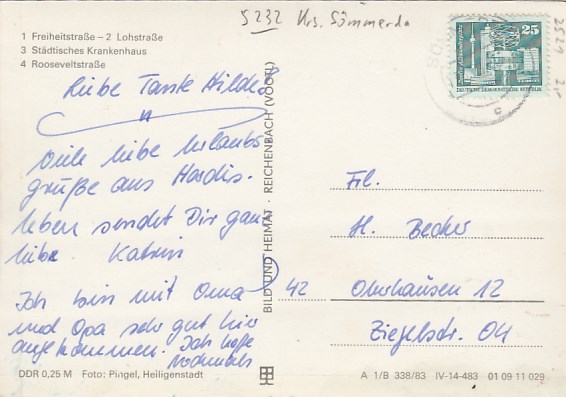 5232 Krs. Sömmerda
1 Freiheitstraße – 2 Lohstraße
3 Städtisches Krankenhaus
4 Rooseveltstraße
Liebe Tante Hilde
Viele liebe Urlaubs-
grüße aus Hardis-
leben sendet Dir ganz
liebe Katrin
Ich bin mit Oma
und Opa sehr gut hier
angekommen. Ich hoffe
nochmals
DDR 0,25 M Foto: Pingel, Heiligenstadt
BILD UND HEIMAT · REICHENBACH (VOGTL)
25
DEUTSCHE DEMOKRATISCHE REPUBLIK
Frl.
H. Becker
42 Oberhausen 12
Ziegelstr. 04
A 1/B 338/83 IV-14-483 01 09 11 029